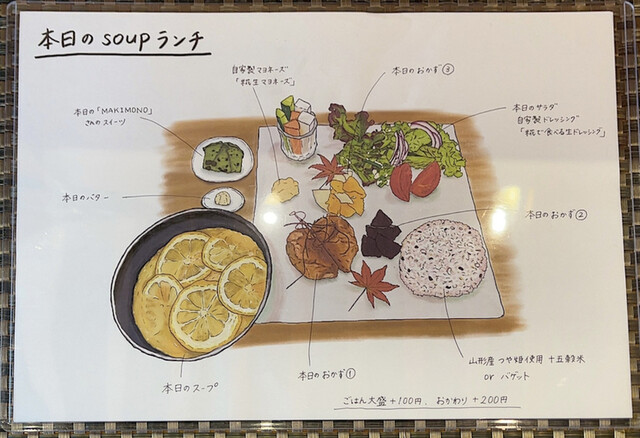 本日のSOUPランチ
自家製マヨネーズ
「糀生マヨネーズ」
本日のおかず③
本日の「MAKIMONO」
さんのスイーツ
本日のサラダ
自家製ドレッシング
「糀で食べる生ドレッシング」
本日のバター
本日のおかず②
本日のスープ
本日のおかず①
山形産 つや姫使用 十五穀米
or バゲット
ごはん大盛+100円、おかわり+200円